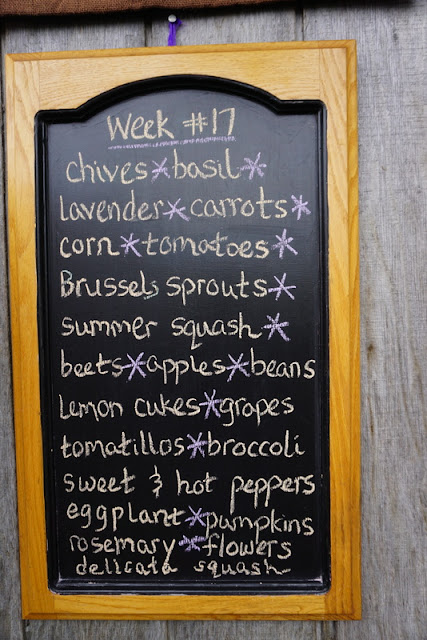 Week #17
chives * basil *
lavender * carrots *
corn * tomatoes *
Brussels sprouts *
summer squash *
beets * apples * beans
Lemon cukes * grapes
tomatillos * broccoli
sweet & hot peppers
eggplant * pumpkins
rosemary * flowers
delicata squash